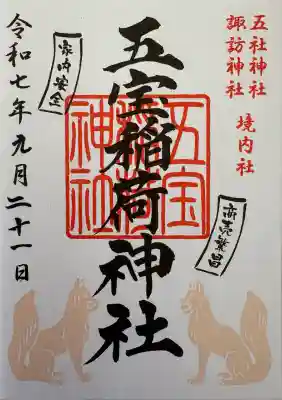 五社神社
諏訪神社
境内社
五宝稲荷神社
五宝
稲荷
神社
商売繁昌
家内安全
令和七年九月二十一日